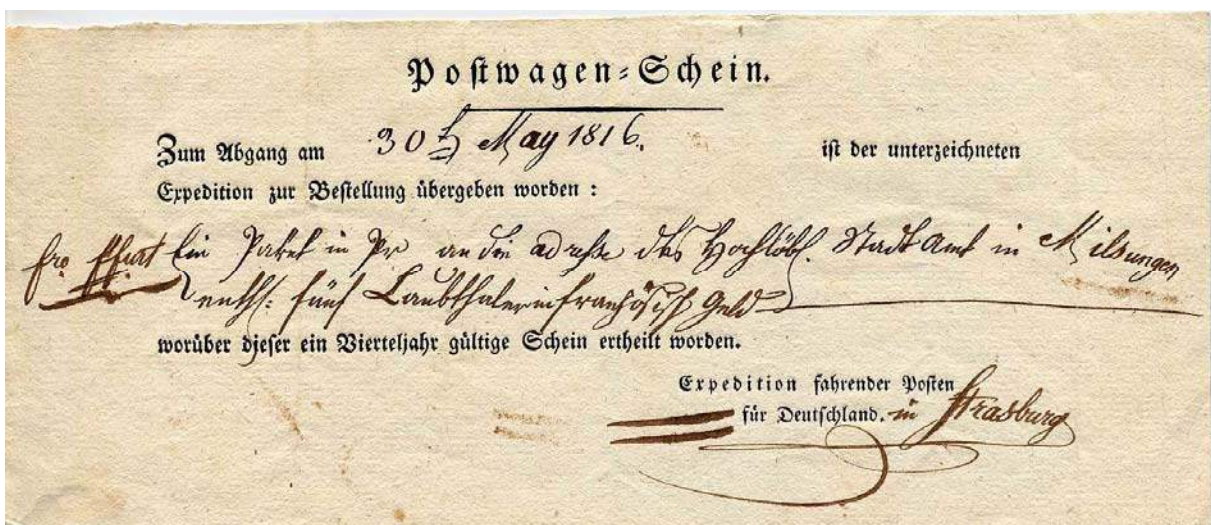 Postwagen-Schein.
Zum Abgang am 30t May 1816. ist der unterzeichneten
Expedition zur Bestellung übergeben worden :
fro Ein Paket in Pr an die adresse des Hochlöbl. Stadt Amt in Milsungen
enth: fünf Laubthaler in französisch Geld
worüber dieser ein Vierteljahr gültige Schein ertheilt worden.
Expedition fahrender Posten
für Deutschland. in Strasburg